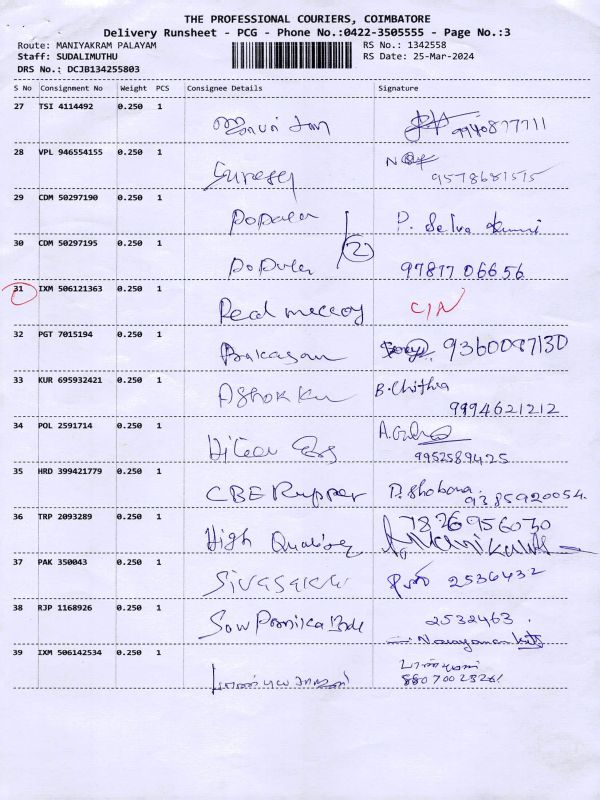 THE PROFESSIONAL COURIERS, COIMBATORE
Delivery Runsheet - PCG - Phone No.:0422-3505555 - Page No.:3
Route: MANIYAKRAM PALAYAM RS No.: 1342558
Staff: SUDALIMUTHU RS Date: 25-Mar-2024
DRS No.: DCJB134255803
S No Consignment No Weight PCS Consignee Details Signature
27 TSI 4114492 0.250 1
9940877711
28 VPL 946554155 0.250 1
Suresh
9578681575
29 CDM 50297190 0.250 1
Popular P. Selva Kumar
2
30 CDM 50297195 0.250 1
Popular 9787706656
31 IXM 506121363 0.250 1
Read meccoy C/N
32 PGT 7015194 0.250 1
9360087130
33 KUR 695932421 0.250 1
Ashok Ku B. Chithra
9994621212
34 POL 2591714 0.250 1
9952589425
35 HRD 399421779 0.250 1
CBE Rupper P. Shobana
9385920054
36 TRP 2093289 0.250 1
7826956030
High
37 PAK 350043 0.250 1
Sivasakthi 2536432
38 RJP 1168926 0.250 1
2532463
Sow Narayanan
39 IXM 506142534 0.250 1
8807002326